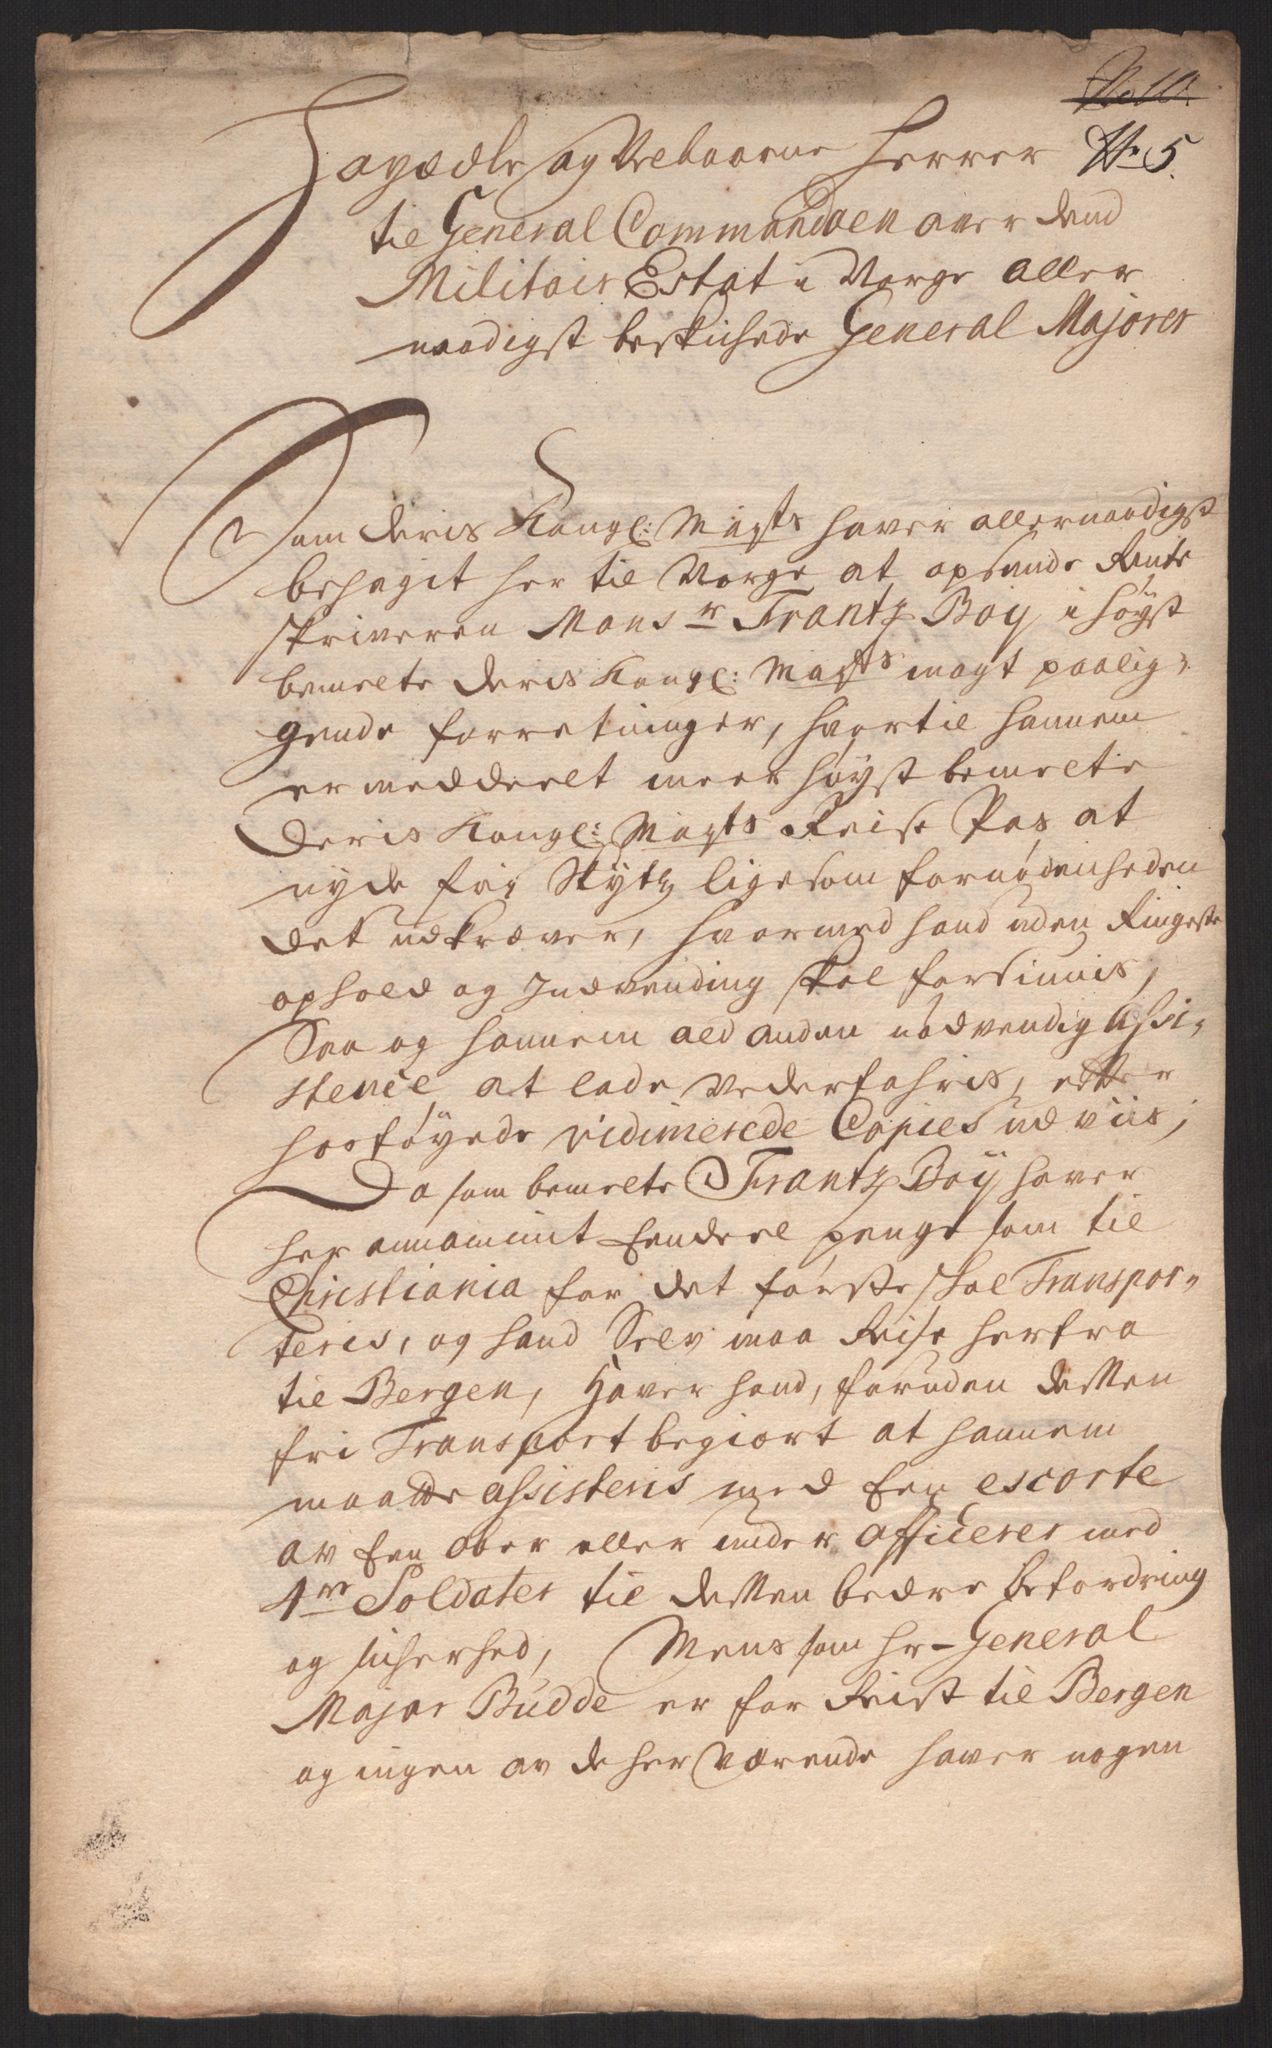 No 10.
No 5.
Høyædle og Velbaarne Herrer
til General Commandoen over dend
Militair Estat i Norge aller
naadigst beskichede General Majorer
Som deris Kongl: Mayts haver allernaadigst
behaget her til Norge at opsende Rente
skriveren Monsr Frantz Boy i høyst
bemelte deris Kongl: Mayts magt paalig-
gende forretninger, hvortil hannem
er meddeelt meer høyst bemelte
Deris Kongl: Mayts Reise Pas at
nyde fri Skytz ligesom fornødenheden
det udkræver, hvormed hand uden Ringeste
ophold og Indvending skal forsiunis,
Saa og hannem ald anden nødvendig assi-
stence at lade Vederfahris, efter
hosføyede vidimerede Copies udviis;
Da som bemelte Frantz Boy haver
her annammit Eendeel penge som til
Christiania for det første skal Transpor-
teris, og hand Selv maa Reise herfra
til Bergen, Haver hand, foruden dessen
fri Transport begiært at hannem
maatte assisteris med Een escorte
av Een ober eller under officerer med
4re Soldater til dessen bedre befordring
og sicherhed, Mens som Hr General
Major Budde er for Reist til Bergen
og ingen av de her værende haver nogen